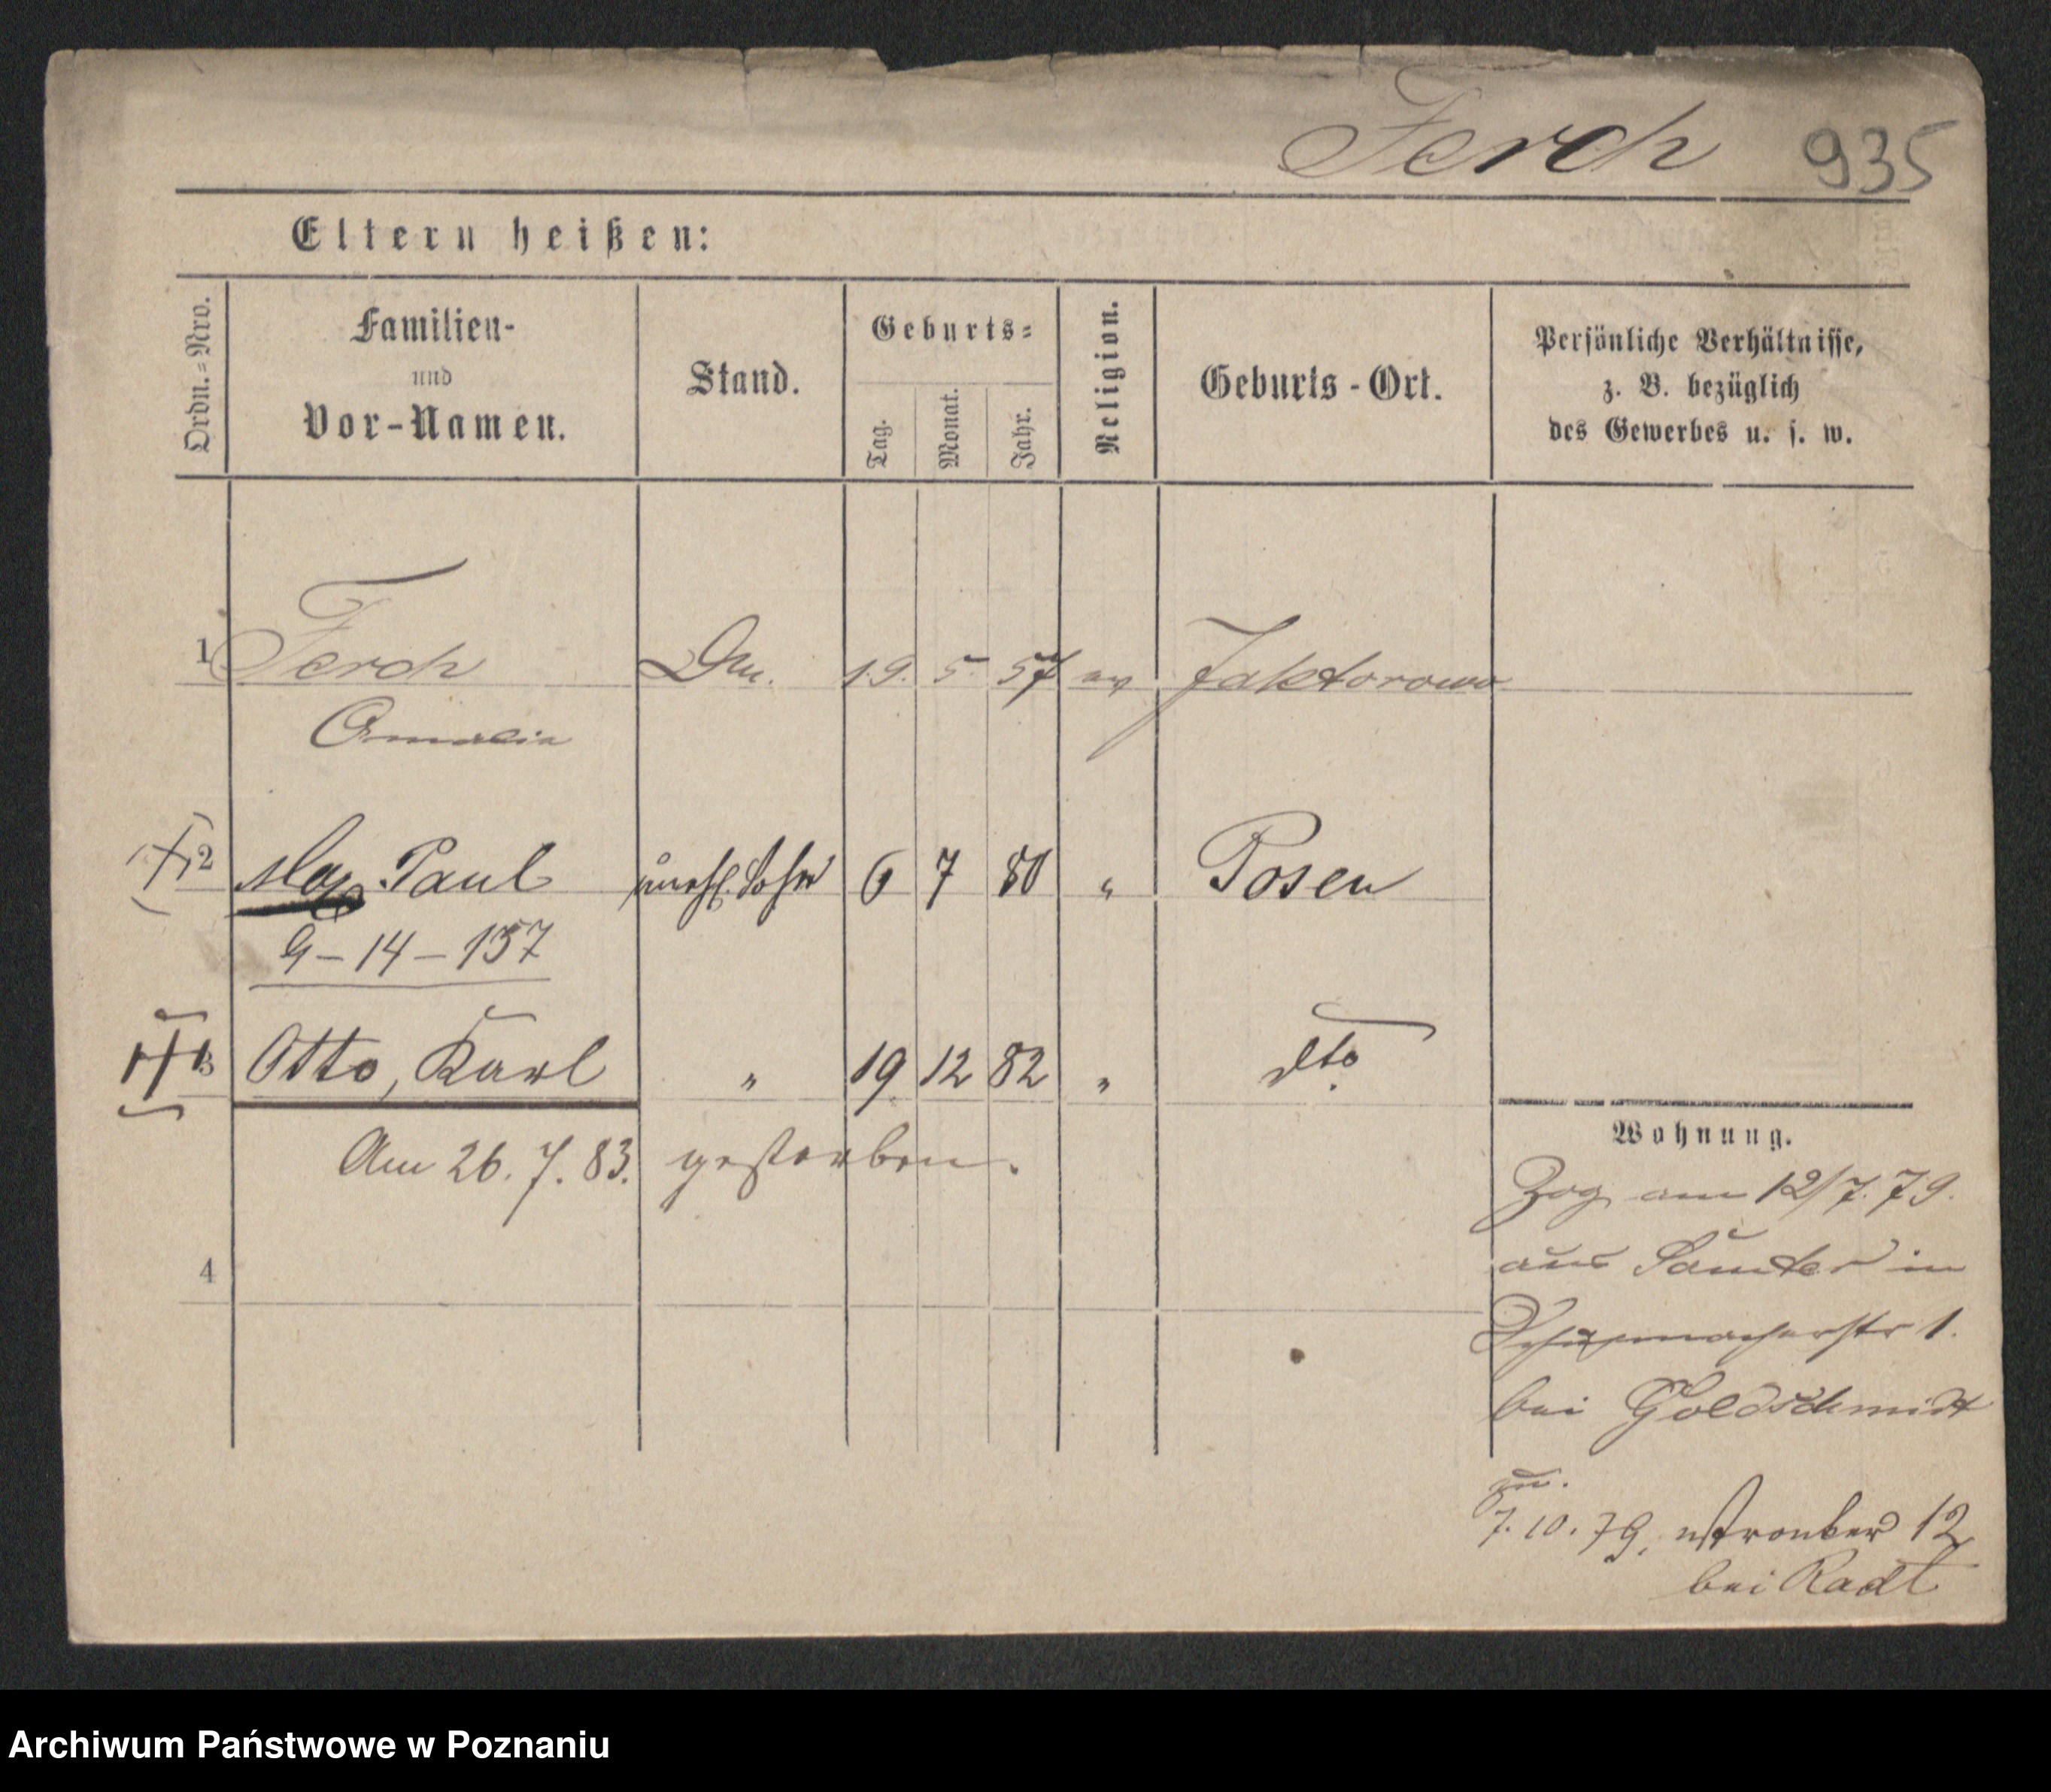 Ferch 935
Eltern heißen:
Ordn.-Nro.
Familien-
und
Vor-Namen.
Stand.
Geburts-
Tag.
Monat.
Jahr.
Religion.
Geburts-Ort.
Persönliche Verhältnisse,
z. B. bezüglich
des Gewerbes u. s. w.
1 Ferch 19. 5. 57 ev Jaktorowo
Amalia
2 Max Paul unehl. Sohn 6 7 80 " Posen
9-14-157
3 Otto, Karl " 19 12 82 " dto.
Am 26. 7. 83. gestorben.
4
Wohnung.
Zog am 12/7. 79.
aus Samter in
Schuhmacherstr 1.
bei Goldschmidt
7. 10. 79. 12
bei Radt
Archiwum Państwowe w Poznaniu